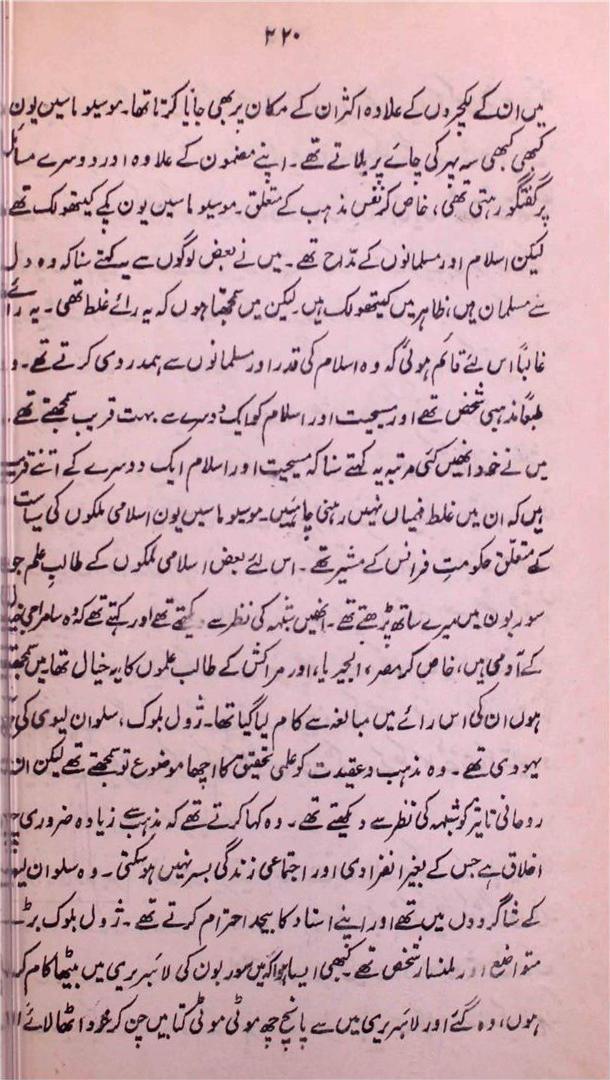 ۳۲۰
میں ان کے لکچروں کے علاوہ اکثر ان کے مکان پر بھی جایا کرتا تھا۔ موسیو ماسین یون
کبھی کبھی سہ پہر کی چائے پر بلاتے تھے۔ اپنے مضمون کے علاوہ اور دوسرے مسائل
پر گفتگو رہتی تھی، خاص کر نفس مذہب کے متعلق۔ موسیو ماسین یون پکے کیتھولک تھے
لیکن اسلام اور مسلمانوں کے مدّاح تھے۔ میں نے بعض لوگوں سے یہ کہتے سنا کہ وہ دل
سے مسلمان ہیں، ظاہر میں کیتھولک ہیں۔ لیکن میں سمجھتا ہوں کہ یہ رائے غلط تھی۔ یہ رائے
غالباً اس لئے قائم ہوئی کہ وہ اسلام کی قدر اور مسلمانوں سے ہمدردی کرتے تھے۔ و
طبعاً مذہبی شخص تھے اور مسیحیت اور اسلام کو ایک دوسرے سے بہت قریب سمجھتے تھے۔
میں نے خود انھیں کئی مرتبہ یہ کہتے سنا کہ مسیحیت اور اسلام ایک دوسرے کے اتنے قریب
ہیں کہ ان میں غلط فہمیاں نہیں رہنی چاہئیں۔ موسیو ماسین یون اسلامی ملکوں کی سیاست
کے متعلق حکومتِ فرانس کے مشیر تھے۔ اس لئے بعض اسلامی ملکوں کے طالبِ علم جو
سوربون میں میرے ساتھ پڑھتے تھے۔ انھیں شبہہ کی نظر سے دیکھتے تھے اور کہتے تھے کہ وہ سامراجی
کے آدمی ہیں، خاص کر مصر، الجیریا، اور مراکش کے طالب علموں کا یہ خیال تھا۔ میں سمجھتا
ہوں ان کی اس رائے میں مبالغہ سے کام لیا گیا تھا۔ ژول بلوک، سلوان لیوی کی
یہودی تھے۔ وہ مذہب و عقیدت کو علمی تحقیق کا اچھا موضوع تو سمجھتے تھے لیکن ان
روحانی تاثیر کو شبہہ کی نظر سے دیکھتے تھے۔ وہ کہا کرتے تھے کہ مذہب سے زیادہ ضروری
اخلاق ہے جس کے بغیر انفرادی اور اجتماعی زندگی بسر نہیں ہو سکتی۔ وہ سلوان لیوی
کے شاگردوں میں تھے اور اپنے استاد کا بیحد احترام کرتے تھے۔ ژول بلوک بڑے
متواضع اور ملنسار شخص تھے۔ کبھی ایسا ہوا کہ میں سوربون کی لائبریری میں بیٹھا کام کر
ہوں، وہ گئے اور لائبریری میں سے پانچ چھ موٹی موٹی کتابیں چن کر خود اٹھا لائے